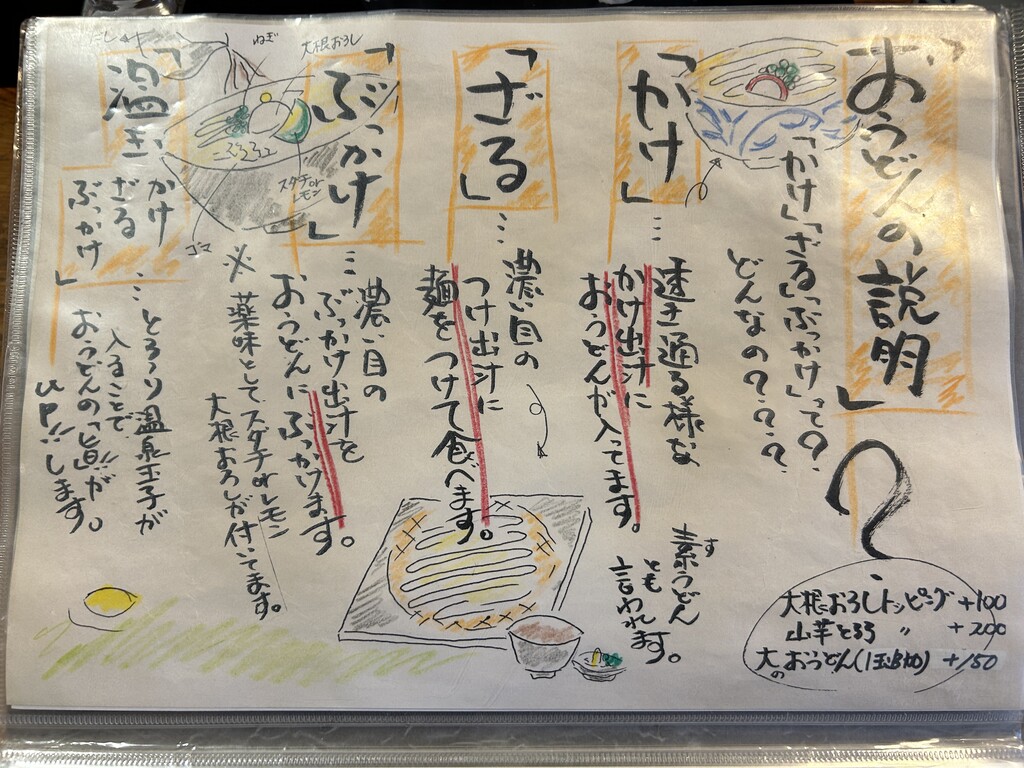 「おうどんの説明」
「かけ」「ざる」「ぶっかけ」って?
どんなの????
「かけ」…
透き通る様な
かけ出汁に
おうどんが入ってます。
素うどん
す
とも
言われます。
「ざる」…
濃い目の
つけ出汁に
麺をつけて食べます。
「ぶっかけ」…
濃い目の
ぶっかけ出汁を
おうどんにぶっかけます。
※薬味としてスダチorレモン
大根おろしが付いてます。
ねぎ
大根おろし
スダチor
レモン
ゴマ
「温き
かけ
ざる
ぶっかけ」
…とろ〜り温泉玉子が
入ることで
おうどんの「旨」が
UP!!します。
大根おろしトッピング +100
山芋とろろ 〃 +200
大のおうどん(1玉追加) +150